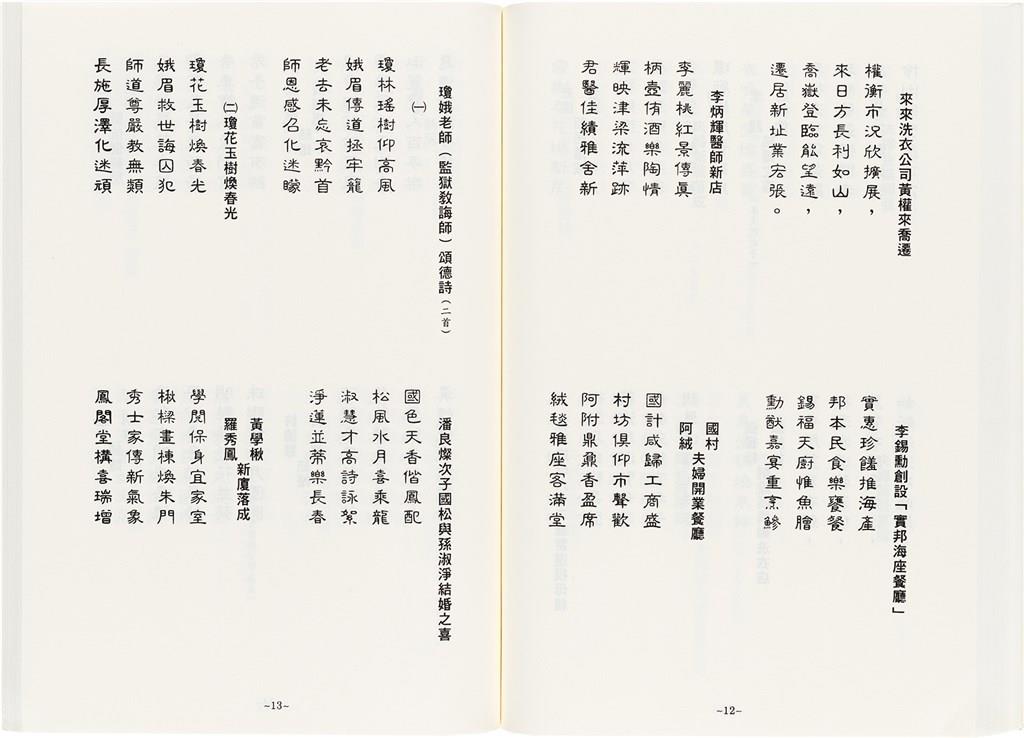 來來洗衣公司黃權來喬遷
權衡市況欣擴展，
來日方長利如山，
喬嶽登臨能望遠，
遷居新址業宏張。
李炳輝醫師新店
李麗桃紅景傳真
柄壹侑酒樂陶情
輝映津梁流萍跡
君醫佳績雅舍新
李錫勳創設「實邦海座餐廳」
實惠珍饈推海產
邦本民食樂饔餐
錫福天廚惟魚膾
勳猷嘉宴重烹鯵
國村
阿絨
夫婦開業餐廳
國計咸歸工商盛
村坊俱仰市聲歡
阿附鼎鼐香盈席
絨毯雅座客滿堂
~12~
瓊娥老師（監獄教誨師）頌德詩（二首）
㈠
瓊林瑤樹仰高風
娥眉傳道拯牢籠
老去未忘哀黔首
師恩感召化迷矇
㈡瓊花玉樹煥春光
瓊花玉樹煥春光
娥眉救世誨囚犯
師道尊嚴教無類
長施厚澤化迷頑
潘良燦次子國松與孫淑淨結婚之喜
國色天香偕鳳配
松風水月喜乘龍
淑慧才高詩詠絮
淨蓮並蒂樂長春
黃學楸
羅秀鳳
新廈落成
學閱保身宜家室
楸樑畫棟煥朱門
秀士家傳新氣象
鳳閣堂構喜瑞增
~13~